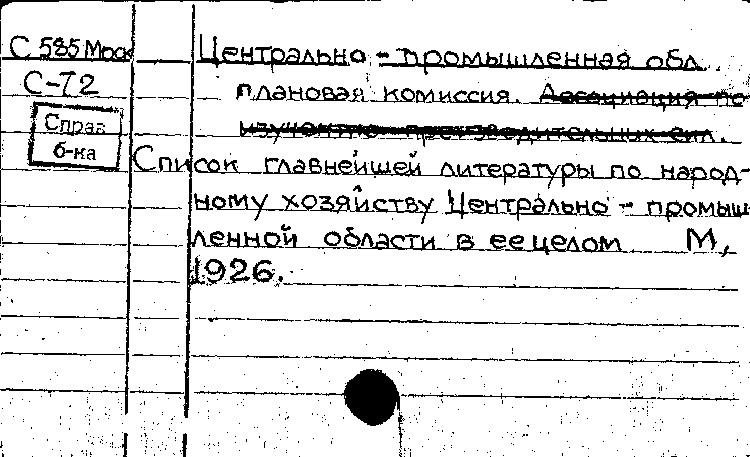 С 585 Моск
С-72
Справ
б-ка
Центрально-промышленная обл.
плановая комиссия. Ассоциация по
изучению производительных сил.
Список главнейшей литературы по народ-
ному хозяйству Центрально-промыш
ленной области в ее целом М,
1926.